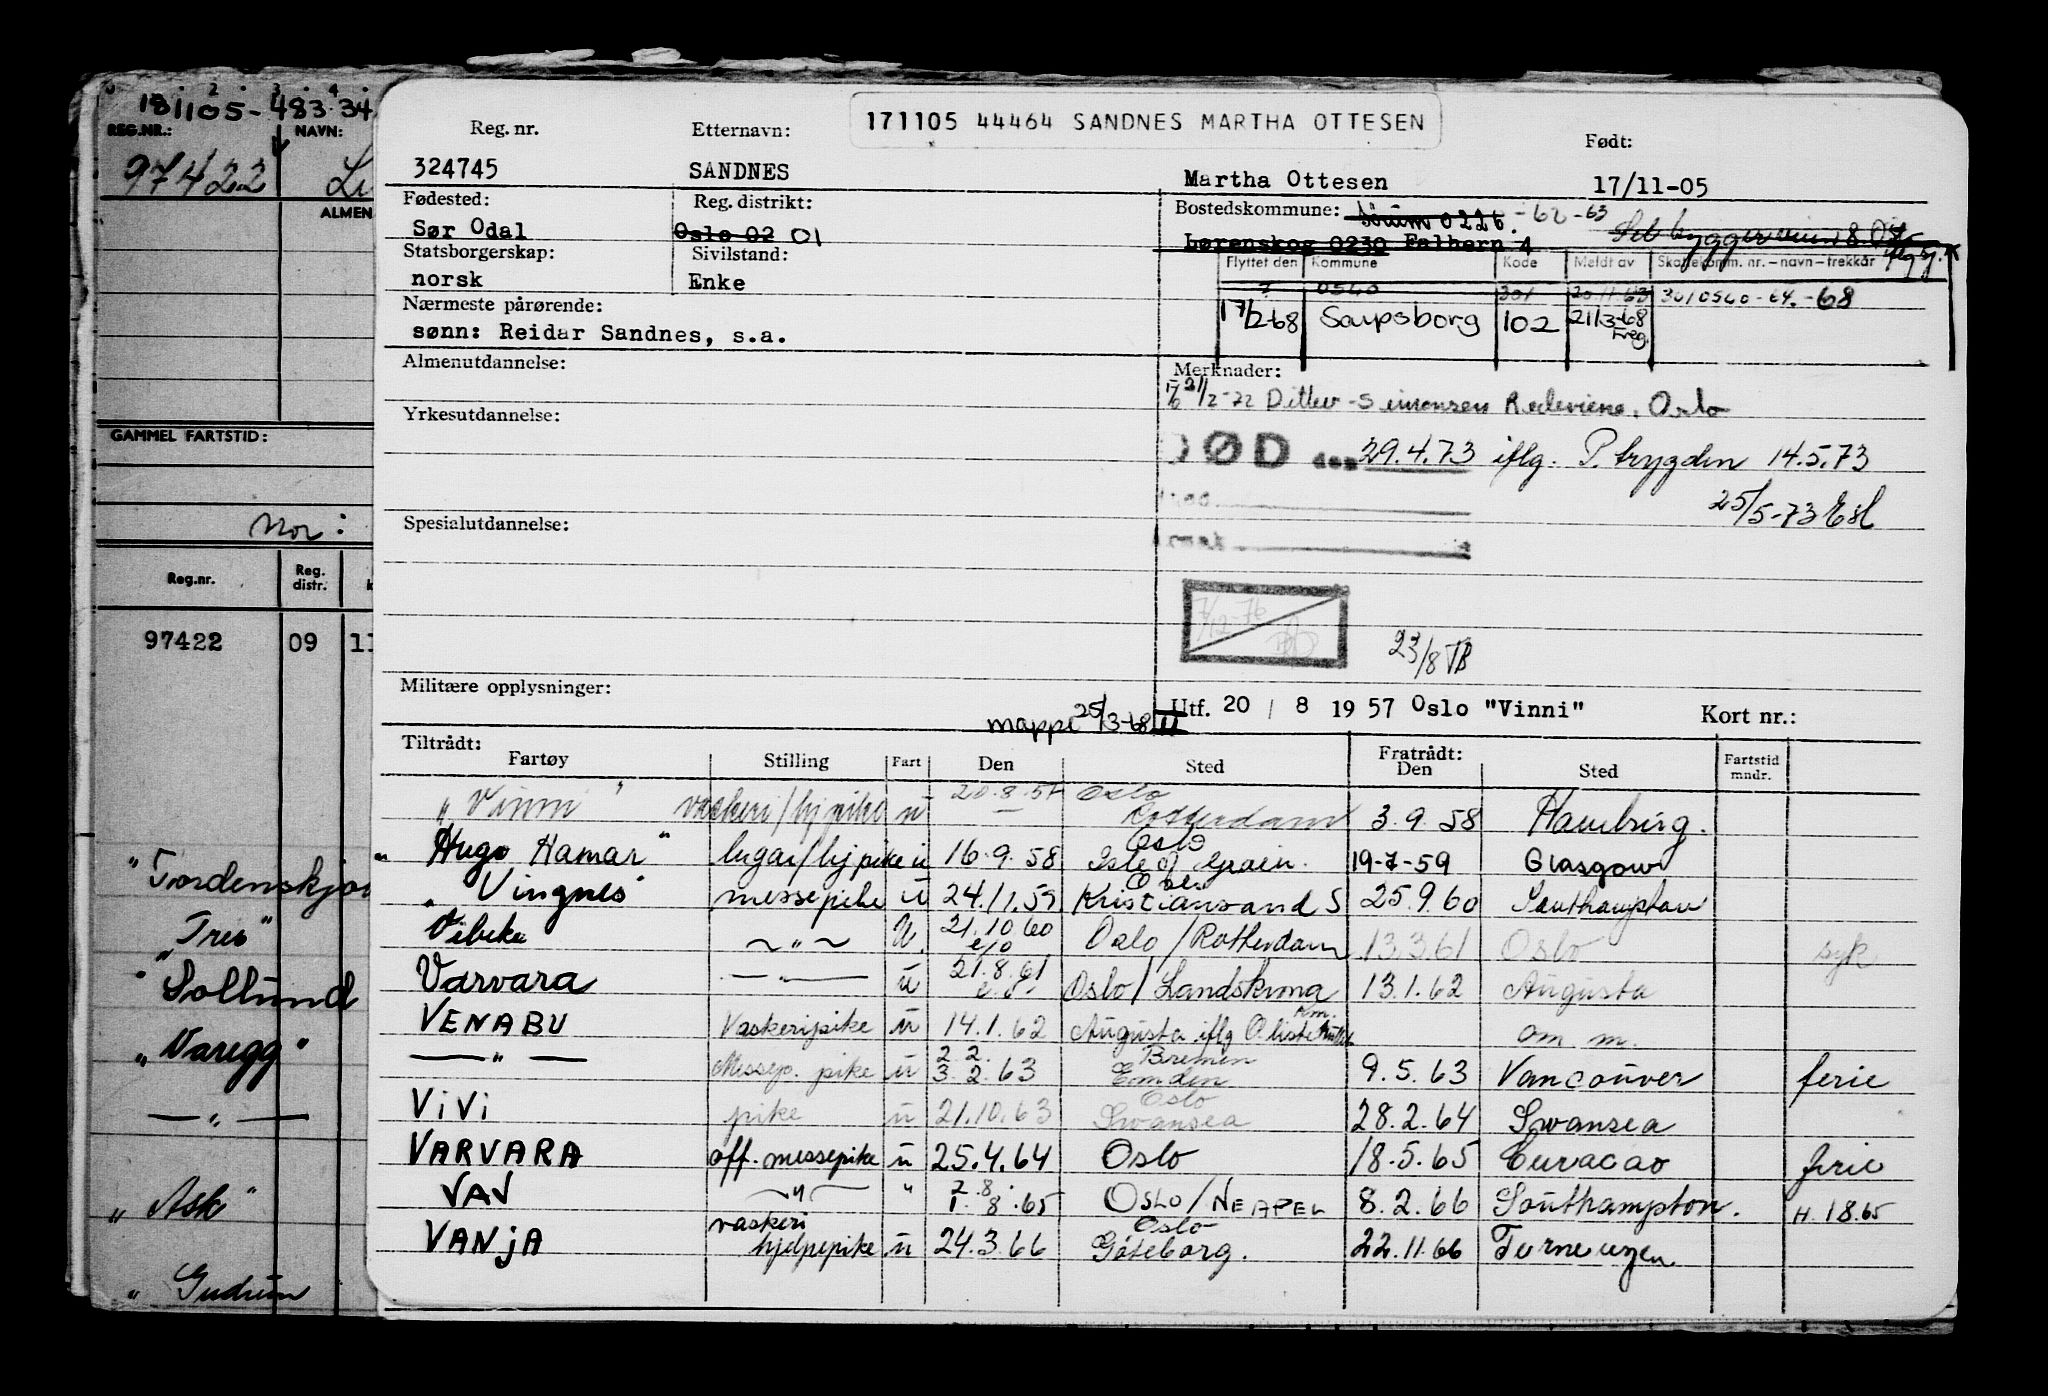 181105-483.34
REG.NR.: NAVN:
97422
ALMEN
GAMMEL FARTSTID:
Mor:
Reg.nr. Reg. distr.
97422 09 11
"Tordenskjo
"Tres"
"Sollund
"Varegg"
— " —
"Ask"
"Gudrun
171105 44464 SANDNES MARTHA OTTESEN
Reg. nr. Etternavn: Født:
324745 SANDNES Martha Ottesen 17/11-05
Fødested: Reg. distrikt: Bostedskommune: Sørum 0226. -62 -63
Sør Odal Oslo 02 01 Lørenskog 0230 Falhern 4
Statsborgerskap: Sivilstand: Flyttet den Kommune Kode Meldt av Skattekomm. nr. – navn – trekkår
norsk Enke 7 0540 301 20.11.63 3010540-64.-68
Nærmeste pårørende: 17/2-68 Sarpsborg 102 21/3-68 Freg.
sønn: Reidar Sandnes, s.a.
Almenutdannelse: Merknader:
21/2-72 Ditlev-Simonsen Rederiene, Oslo
Yrkesutdannelse:
DØD den 29.4.73 iflg. P. trygden 14.5.73
25/5-73 Esl
Spesialutdannelse:
7/12-76
23/8 TB
Militære opplysninger: Utf. 20 / 8 1957 Oslo "Vinni" Kort nr.:
mappe 25/3-68
Tiltrådt: Fratrådt:
Fartøy Stilling Fart Den Sted Den Sted Fartstid mndr.
"Vinni" vaskeri/hj pike u 20.8.57 Oslo Rotterdam 3.9.58 Hamburg.
"Hugo Hamar" lugar/hj pike u 16.9.58 Oslo Isle of Grain. 19-7-59 Glasgow
"Vingnes" messepike u 24.11.59 Kristiansand S 25.9.60 Southampton
Vibeke — " — U. 21.10.60 Oslo/Rotterdam 13.3.61 Oslo syk
Varvara — " — u 21.8.61 Oslo/Landskrona 13.1.62 Augusta
VENABU Vaskeripike u 14.1.62 Augusta iflg O.liste om m.
— " — Messep. pike u 2.2. 3.2.63 Bremen Emden 9.5.63 Vancouver ferie
ViVi pike u 21.10.63 Oslo Swansea 28.2.64 Swansea
VARVARA off. messepike u 25.4.64 Oslo 18.5.65 Curacao ferie
VAV — " — " 7.8. 1.8.65 OSLO/NEAPEL 8.2.66 Southampton. H. 18.65
VANjA vaskeri hjelpepike u 24.3.66 Oslo Göteborg. 22.11.66 Terneuzen